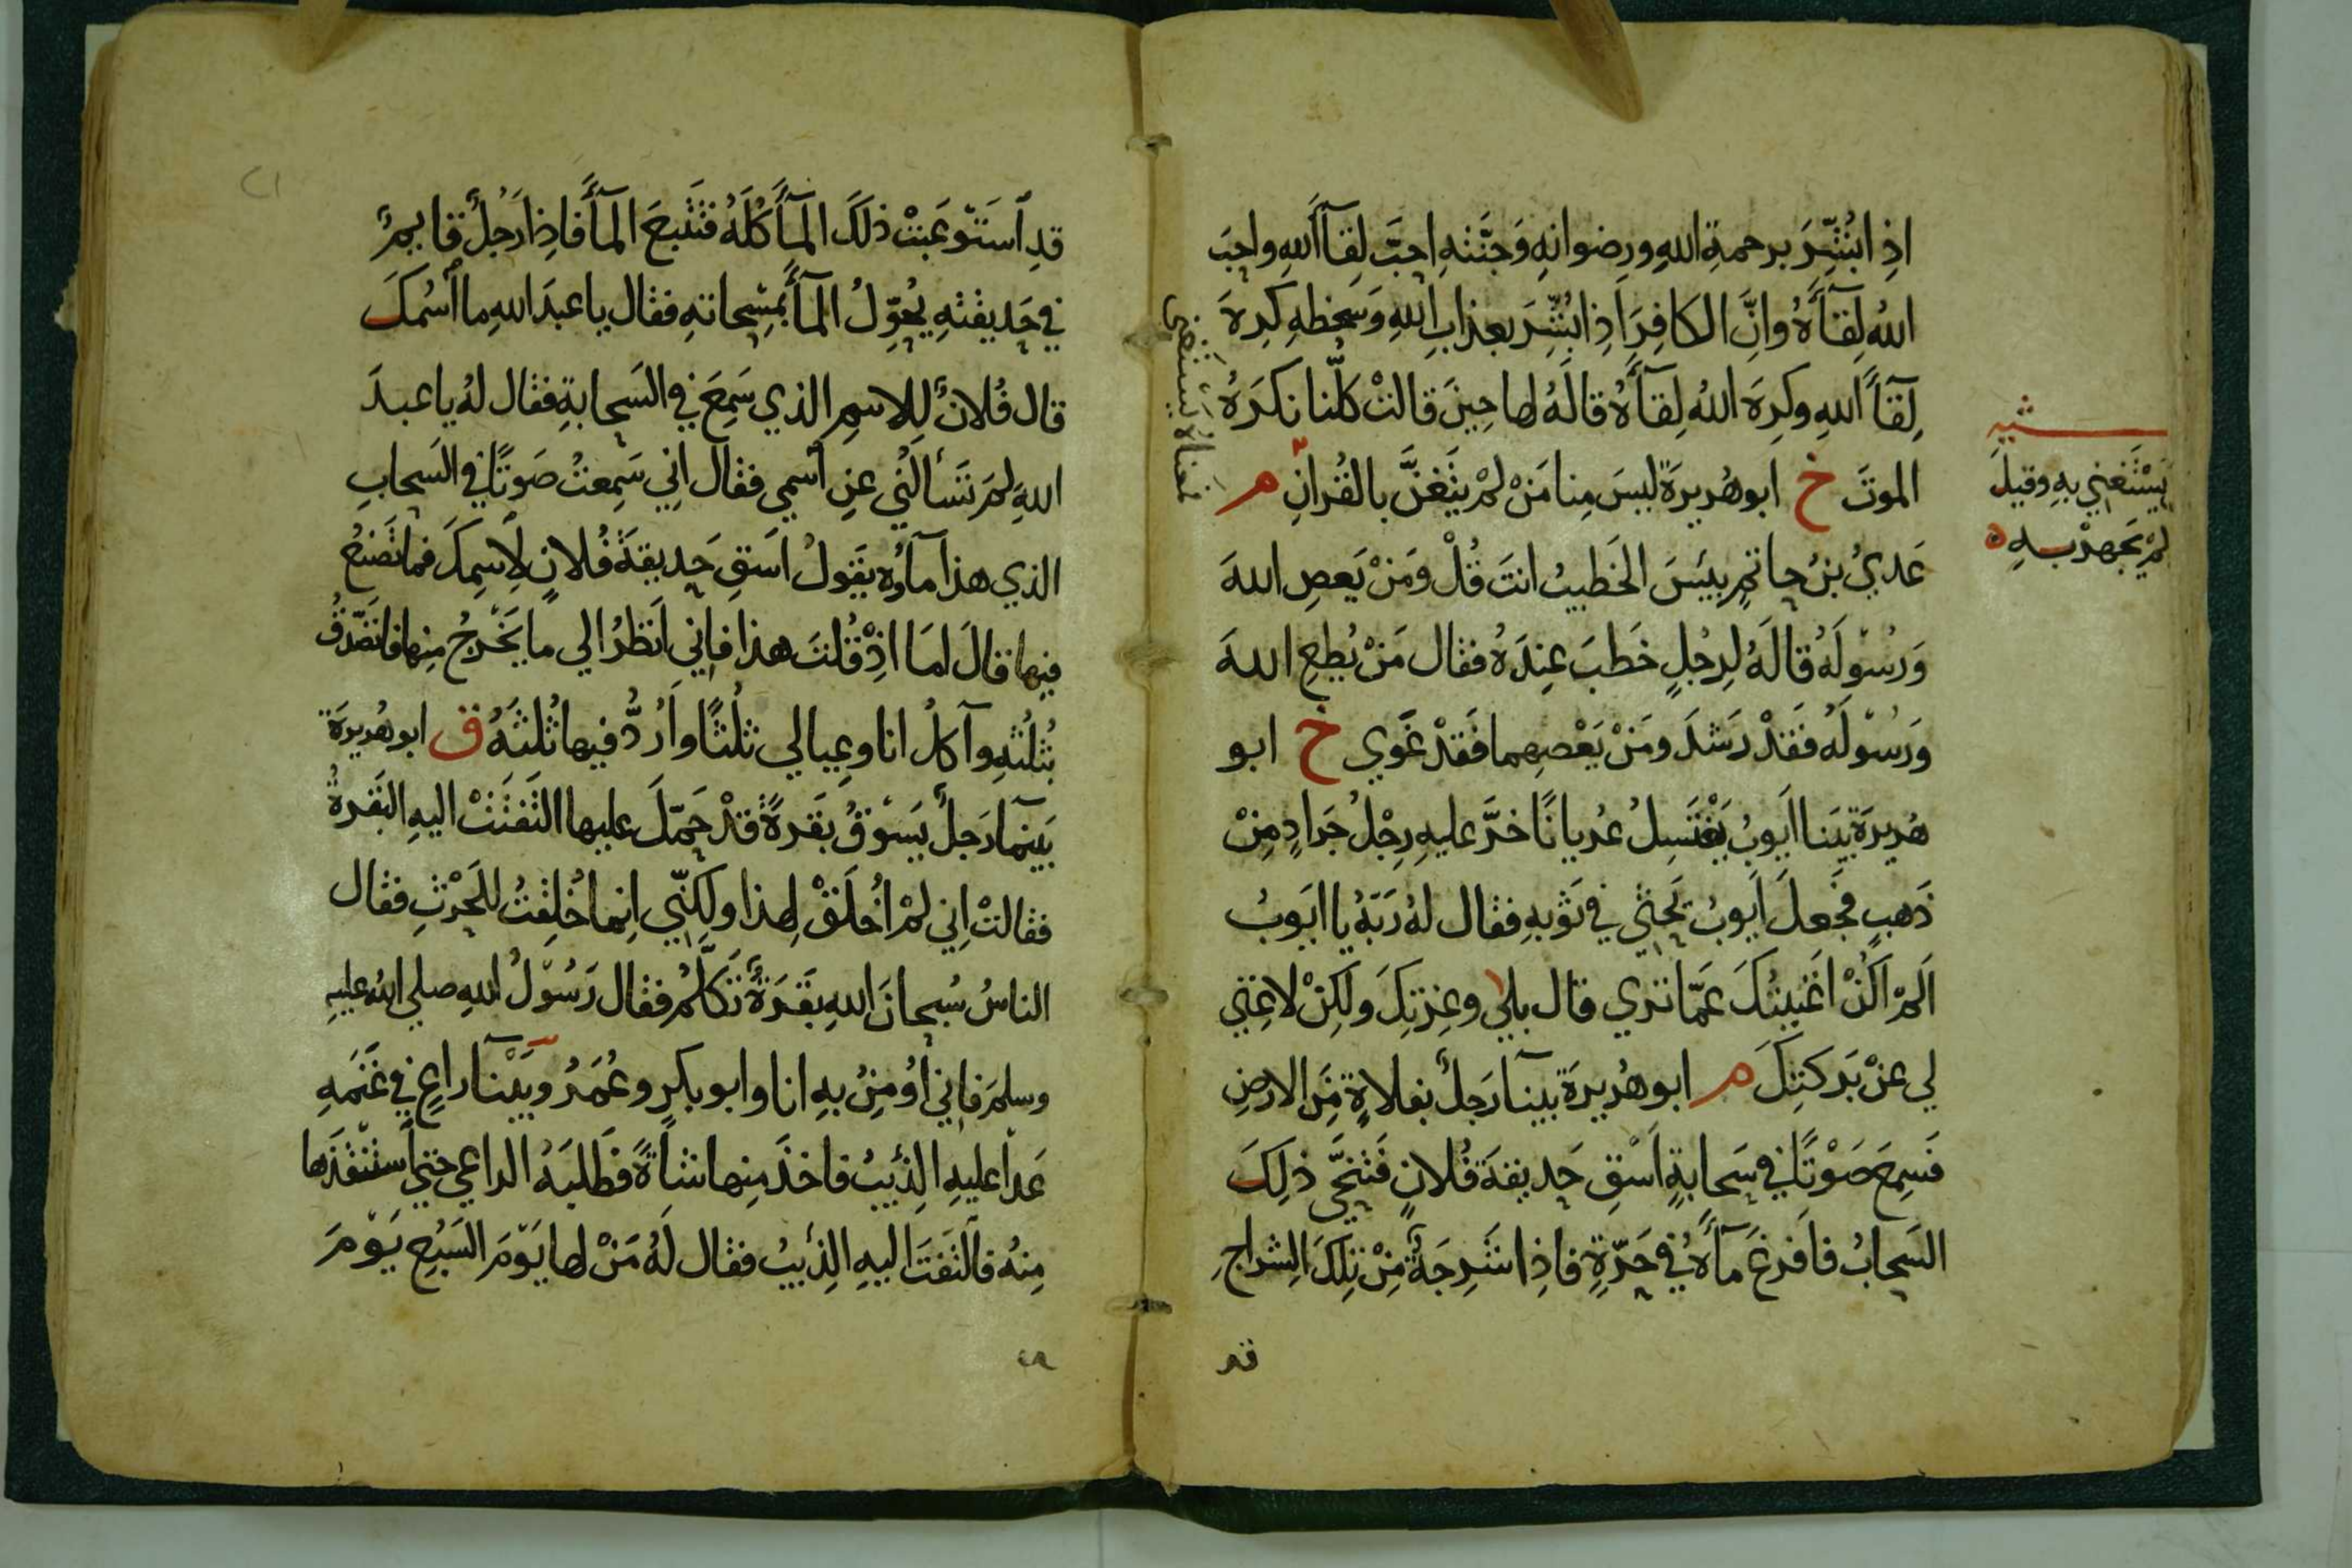 اذِ ابُشِّرَ برحمةِ اللهِ ورِضوانِهِ وَجَنَّتهِ احبَّ لِقآَ اللهِ واحبَ
اللهُ لِقآَهُ وانَّ الكافِرَ اذِا بُشِّرَ بعذابِ اللهِ وَسَخطهِ كَرِهَ
لِقآَ اللهِ وكرِهَ اللهُ لِقآَهُ قالَهُ لها حِينَ قالتْ كلُّنا نكرَهُ
الموتَ خ ابو هُريرَة ليسَ مِنا مَنْ لمْ يتَغنَّ بالقُرانِ م
عَديُ بنُ حاتمٍ بيَسَ الخَطيبُ انتَ قُلْ ومَنْ يَعصِ اللهَ
وَرسُولَهُ قالَهُ لِرجُلٍ خَطبَ عِندَهُ فقال مَنْ يُطعِ اللهَ
وَرسُولَهُ فقَدْ رَشدَ ومَنْ يَعْصِهما فقَدْ غَوي خ ابو
هُريرَة بَينا ايوبُ يَغْتَسِلُ عُريانًا خرَّ عليهِ رِجْلُ جَرادٍ مِنْ
ذَهبٍ فجَعلَ ايوبُ يَحثي في ثوبهِ فقال لهُ رَبّهُ يا ايوبُ
اَلمْ اَكُنْ اغنيتُكَ عَمّا تري قال بلي وعِزتِكَ ولَكِنْ لا غِنَي
لي عنْ بَركتِكَ م ابو هُريرَة بينآ رَجلٌ بفلاةٍ مِنَ الارضِ
فَسمِعَ صَوْتًا في سَحابةٍ اَسْقِ حَديقةَ فُلانٍ فَتنحَّي ذلِكَ
السَحابُ فافرغَ مآهُ في حَرّةٍ فاذِا شَرجَةٌ مِنْ تلكَ الشِراجِ
قد
يَسْتَغني بهِ وقيلَ
لمْ يَجهرْ بهِ ه
قدِ اَستَوعَبتْ ذلكَ المآَ كُلَّهُ فتَتبعَ المآَ فاذِا رَجُلٌ قايمٌ
في حَديقتهِ يُحوِّلُ المآَ بمِسْحاتهِ فقال يا عبدَ اللهِ ما اَسْمُكَ
قال فُلانٌ لِلاسمِ الذي سَمِعَ في السَحابةِ فقال لهُ يا عبدَ
اللهِ لمَ تَسألُني عنِ اَسمي فقال اني سَمِعتُ صَوتًا في السَحابِ
الذي هذا مآوُه يقولُ اَسقِ حَديقةَ فُلانٍ لِاَسمِكَ فما تَصنعُ
فيها قالَ امَا اذِْ قُلتَ هذا فاِني اَنظرُ الي ما يَخْرجُ مِنها فاتصَّدقُ
بثُلثهِ وآكلُ انا وعِيالي ثلُثًا وارُدُّ فيها ثُلثَهُ ق ابو هُريرَة
بَينمآ رَجلٌ يَسوقُ بَقرةً قدْ حَمّلَ عليها التَفتَتْ اليهِ البَقرةُ
فقالتْ اِني لمْ اُخلَقْ لهذا ولكِنّي اِنما خُلِقتُ للحَرْثِ فقال
الناسُ سُبحانَ اللهِ بقَرةٌ تَكَلّمُ فقال رَسُولُ اللهِ صلي الله عليه
وسلمَ فاِني اُومِنُ بهِ انا وابو بكرٍ وعُمَرُ وبَيْنآ راعٍ في غَنَمهِ
عَدا عليهِ الذِئيبُ فاخذَ مِنها شاةً فطَلبَهُ الراعي حتي اَستنْقذَها
مِنهُ فالتَفتَ اليهِ الذِئيبُ فقال لهُ مَنْ لها يَوْمَ السَبُعِ يَوْمَ